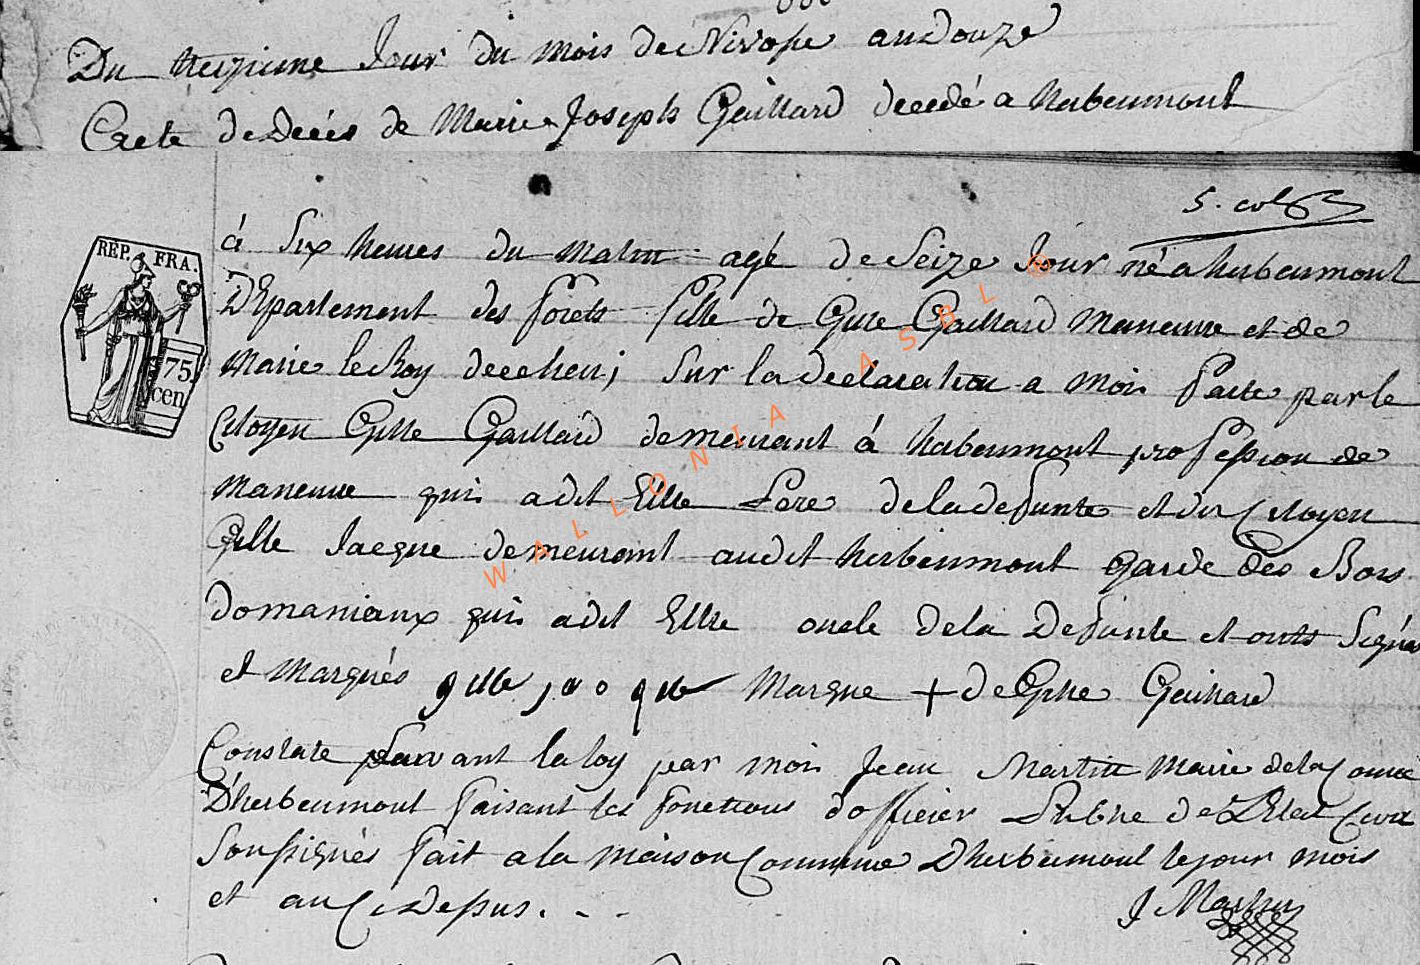 Du treizieme Jour du mois de Nivose an Douze
Acte de Deces de Marie Joseph Gaillard decedé a herbeumont
5. col
RÉP. FRA.
75
cen
à Six heures du matin agé de Seize Jour né a herbeumont
DEpartement des forets fille de Gille Gaillard maneuvre et de
Marie le Roy de Sur la Declaration a moi faite par le
Citoyen Gille Gaillard demeurant à herbeumont profession de
maneuvre qui a dit Etre Pere de la defunte et du Citoyen
Gille Jacque demeurant audit herbeumont garde des Bois
domaniaux qui a dit Etre oncle de la Defunte et onts Signés
et marqués gille jaoque marque + de Gille Gaillard
Constate suivant la loy par moi Jean Martin maire de la Comune
D'herbeumont faisant les fonctions d'officier Public de L'Etat Civil
Soussignés fait a la maison Commune D'herbeumont le jour mois
et an Ci Dessus. - -
J Martin
WALLONIA ASBL ®